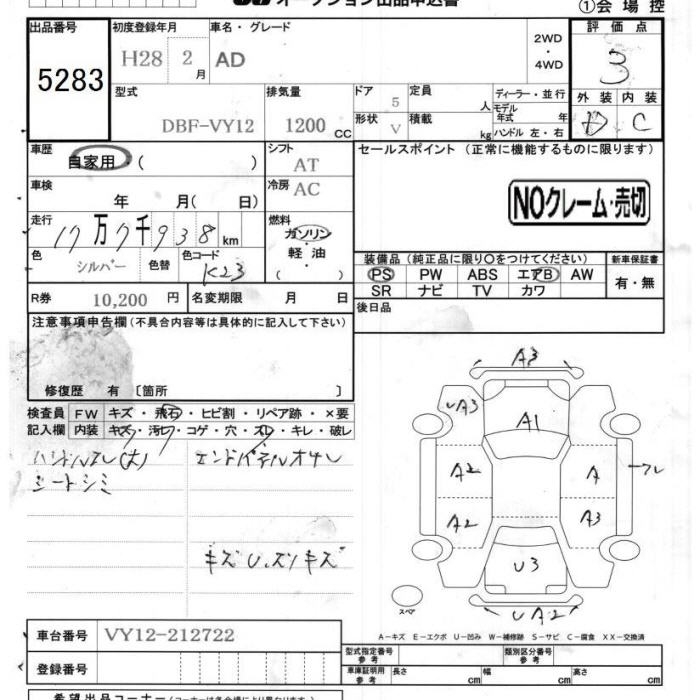 オークション出品申込書
①会場控
出品番号 初度登録年月 車名・グレード 評価点
5283 H28 2月 AD 2WD・4WD 3
型式 排気量 ドア 定員 ディーラー・並行 外装 内装
DBF-VY12 1200cc 5 人 モデル年式 年 D C
形状 V 積載 kg ハンドル 左・右
車歴 自家用・( ) シフト AT セールスポイント (正常に機能するものに限ります)
車検 年 月(日) 冷房 AC
NOクレーム・売切
走行 17万7千938km 燃料 ガソリン・軽油・( )
色 シルバー 色替 色コード K23
装備品(純正品に限り○をつけてください) 新車保証書
PS PW ABS エアB AW 有・無
SR ナビ TV カワ
R券 10,200円 名変期限 月 日 後日品
注意事項申告欄(不具合内容等は具体的に記入して下さい)
修復歴 有〔箇所 〕
検査員記入欄 FW キズ・飛石・ヒビ割・リペア跡・×要
内装 キズ・汚レ・コゲ・穴・スレ・キレ・破レ
ハンドルスレ(大)
シートシミ
キズU.スリキズ
A3
UA3
A1
A2 A
A2 A3
U3
UA2
スペア
A-キズ E-エクボ U-凹み W-補修跡 S-サビ C-腐食 XX-交換済
車台番号 VY12-212722
型式指定番号 参考 類別区分番号 参考
登録番号
車庫証明用 参考 長さ cm 幅 cm 高さ cm
希望出品コーナー